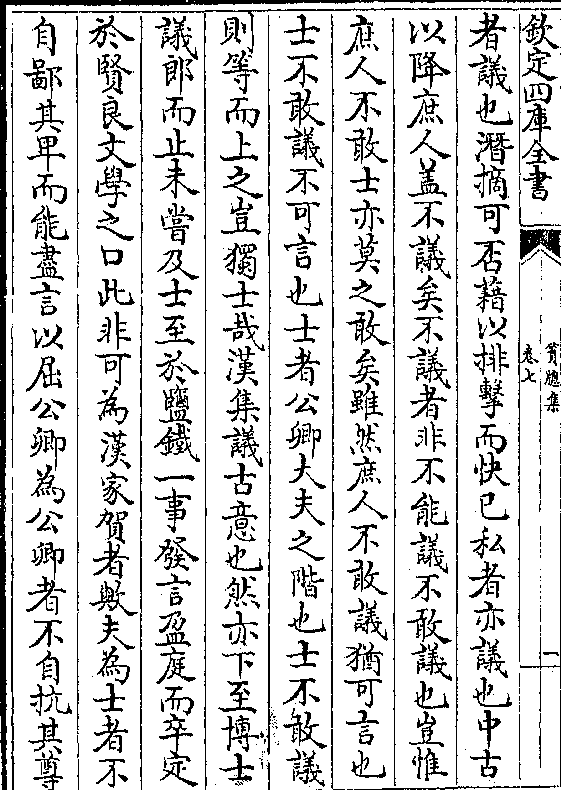 欽定四庫全書
貧牕集
卷七
一
者議也潛摘可否藉以排擊而快已私者亦議也中古
以降庶人盖不議矣不議者非不能議不敢議也豈惟
庶人不敢士亦莫之敢矣雖然庶人不敢議猶可言也
士不敢議不可言也士者公卿大夫之階也士不敢議
則等而上之豈獨士哉漢集議古意也然亦下至博士
議郎而止未嘗及士至於鹽鐵一事發言盈庭而卒定
於賢良文學之口此非可為漢家賀者歟夫為士者不
自鄙其卑而能盡言以屈公卿為公卿者不自抗其尊